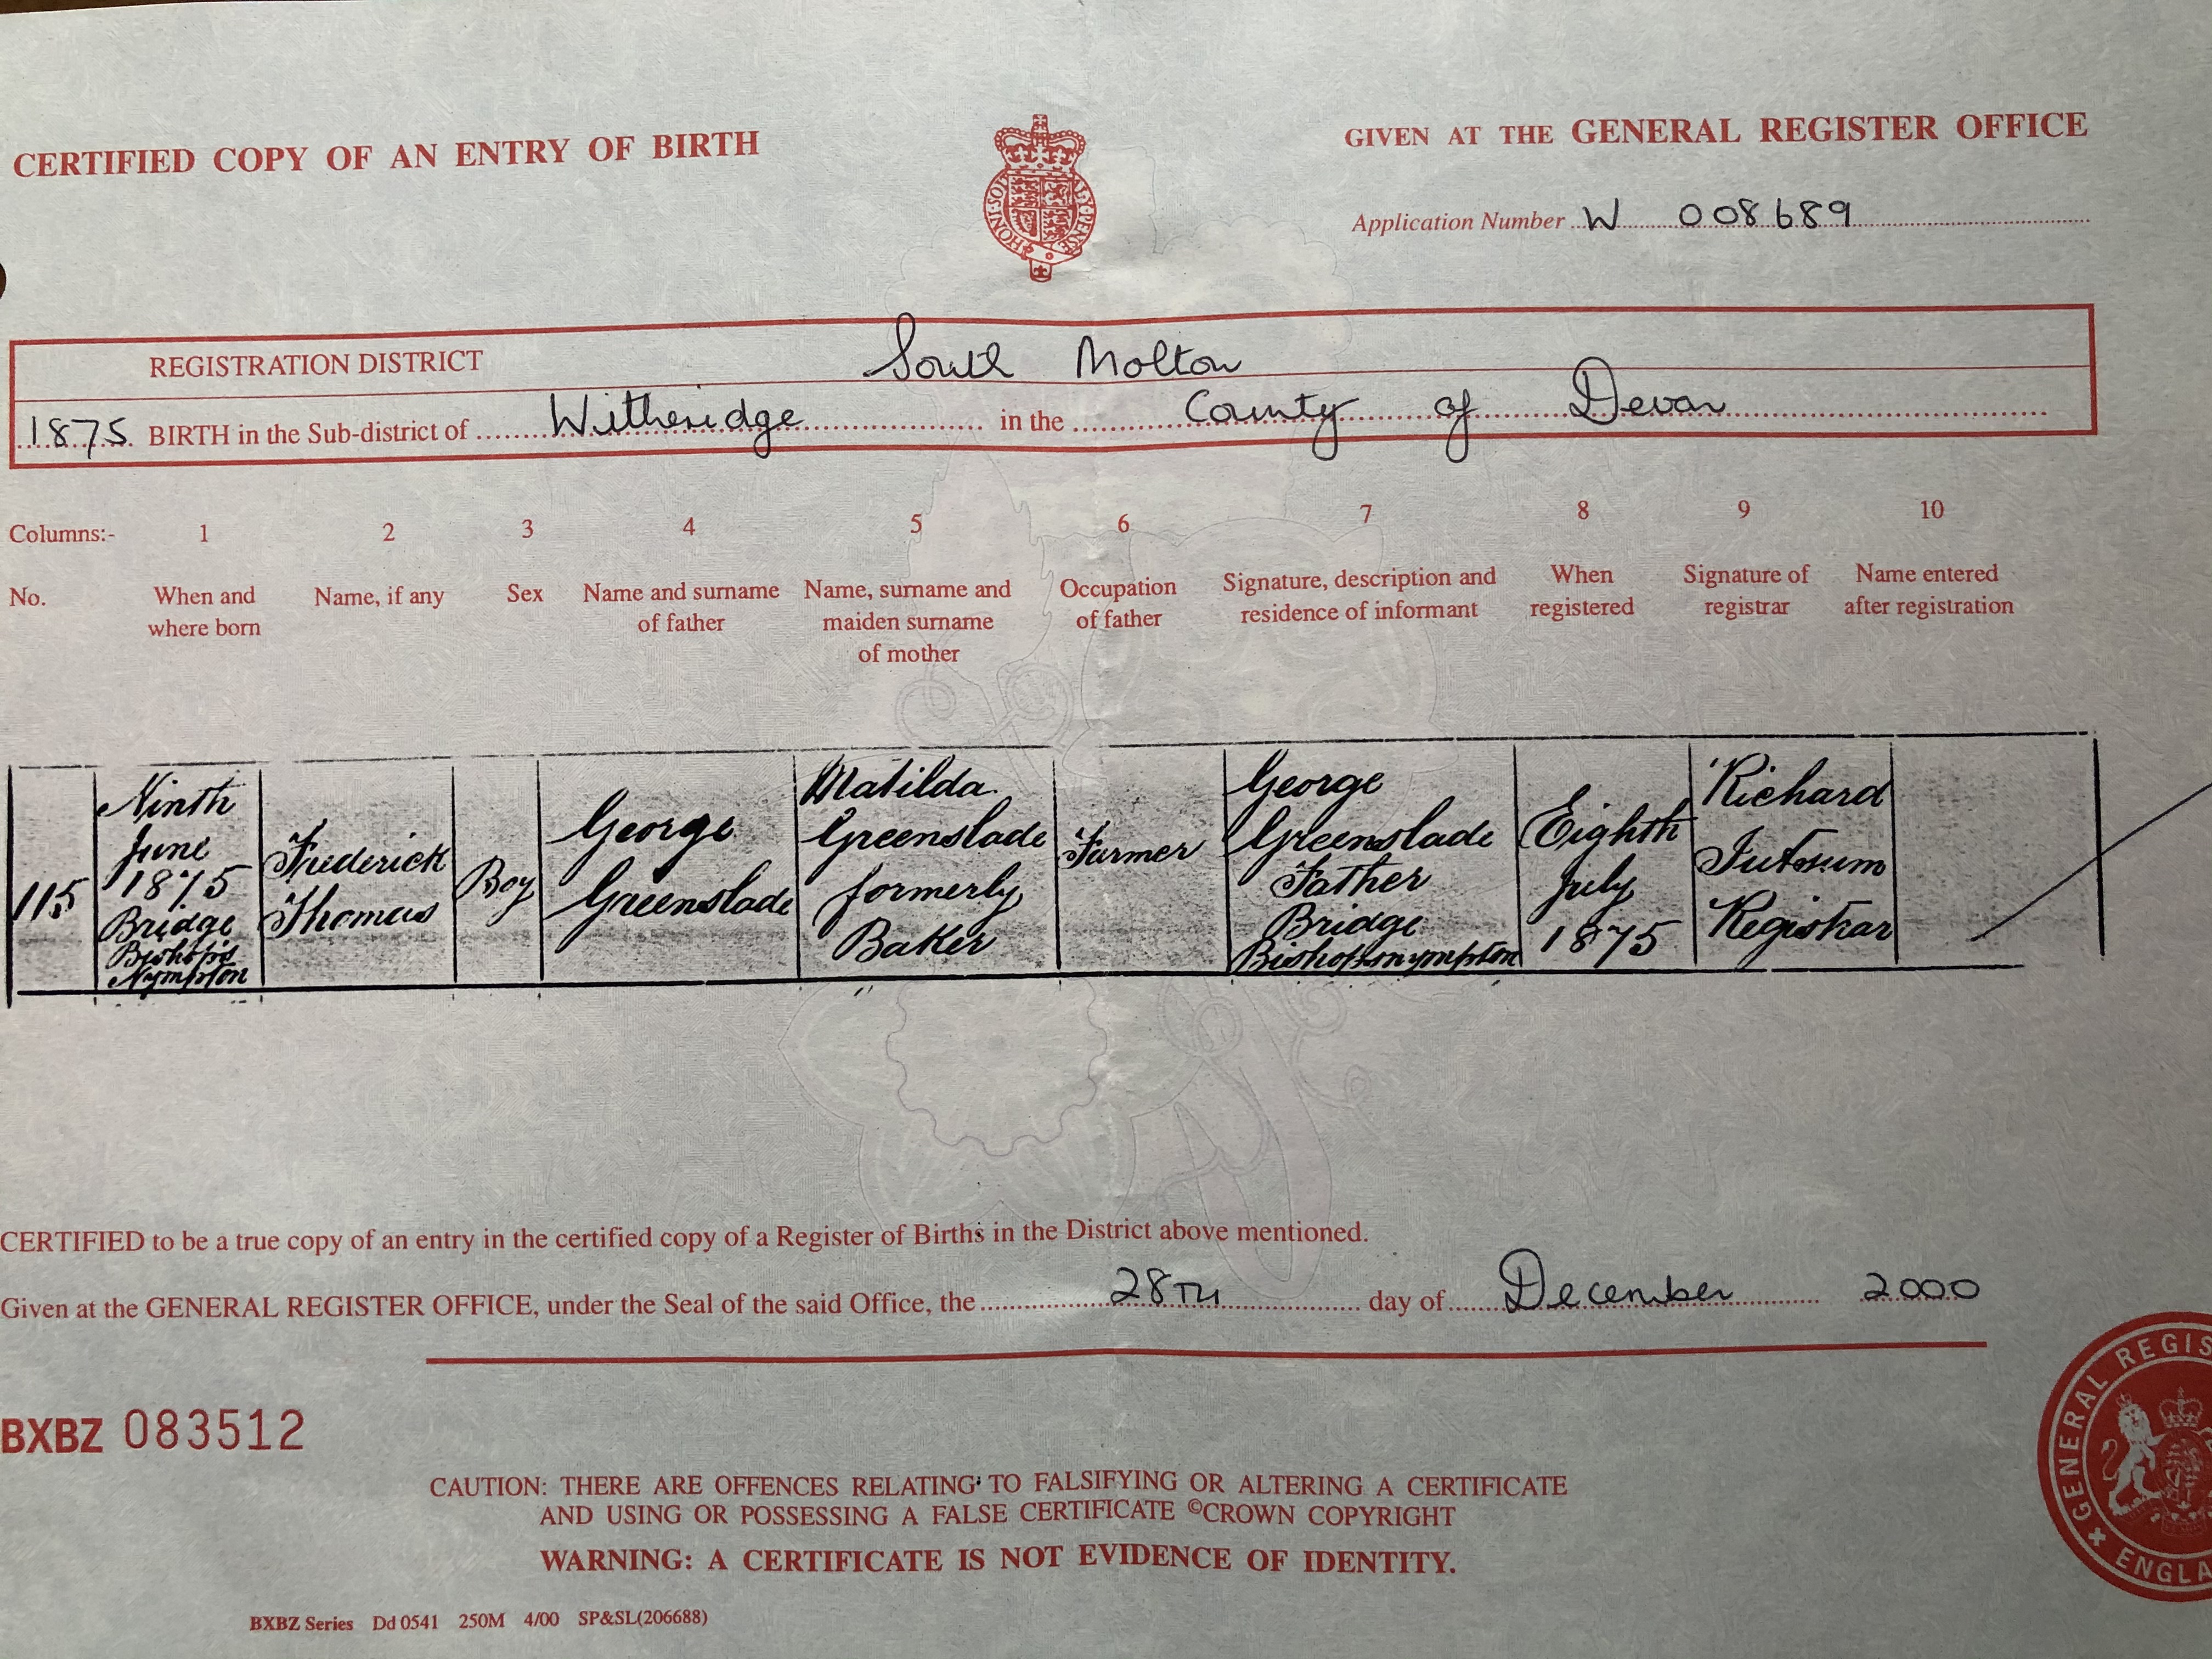 CERTIFIED COPY OF AN ENTRY OF BIRTH
GIVEN AT THE GENERAL REGISTER OFFICE
Application Number W 008689
REGISTRATION DISTRICT South Molton
1875 BIRTH in the Sub-district of Witheridge in the County of Devon
Columns:- 1 2 3 4 5 6 7 8 9 10
No.
When and
where born
Name, if any
Sex
Name and surname
of father
Name, surname and
maiden surname
of mother
Occupation
of father
Signature, description and
residence of informant
When
registered
Signature of
registrar
Name entered
after registration
115
Ninth
June
1875
Bridge
Bishop's
Nympton
Frederick
Thomas
Boy
George
Greenslade
Matilda
Greenslade
formerly
Baker
Farmer
George
Greenslade
Father
Bridge
Bishopsnympton
Eighth
July
1875
Richard
Registrar
CERTIFIED to be a true copy of an entry in the certified copy of a Register of Births in the District above mentioned.
Given at the GENERAL REGISTER OFFICE, under the Seal of the said Office, the 28TH day of December 2000
BXBZ 083512
GENERAL REGIS
ENGLA
CAUTION: THERE ARE OFFENCES RELATING TO FALSIFYING OR ALTERING A CERTIFICATE
AND USING OR POSSESSING A FALSE CERTIFICATE ©CROWN COPYRIGHT
WARNING: A CERTIFICATE IS NOT EVIDENCE OF IDENTITY.
BXBZ Series Dd 0541 250M 4/00 SP&SL(206688)